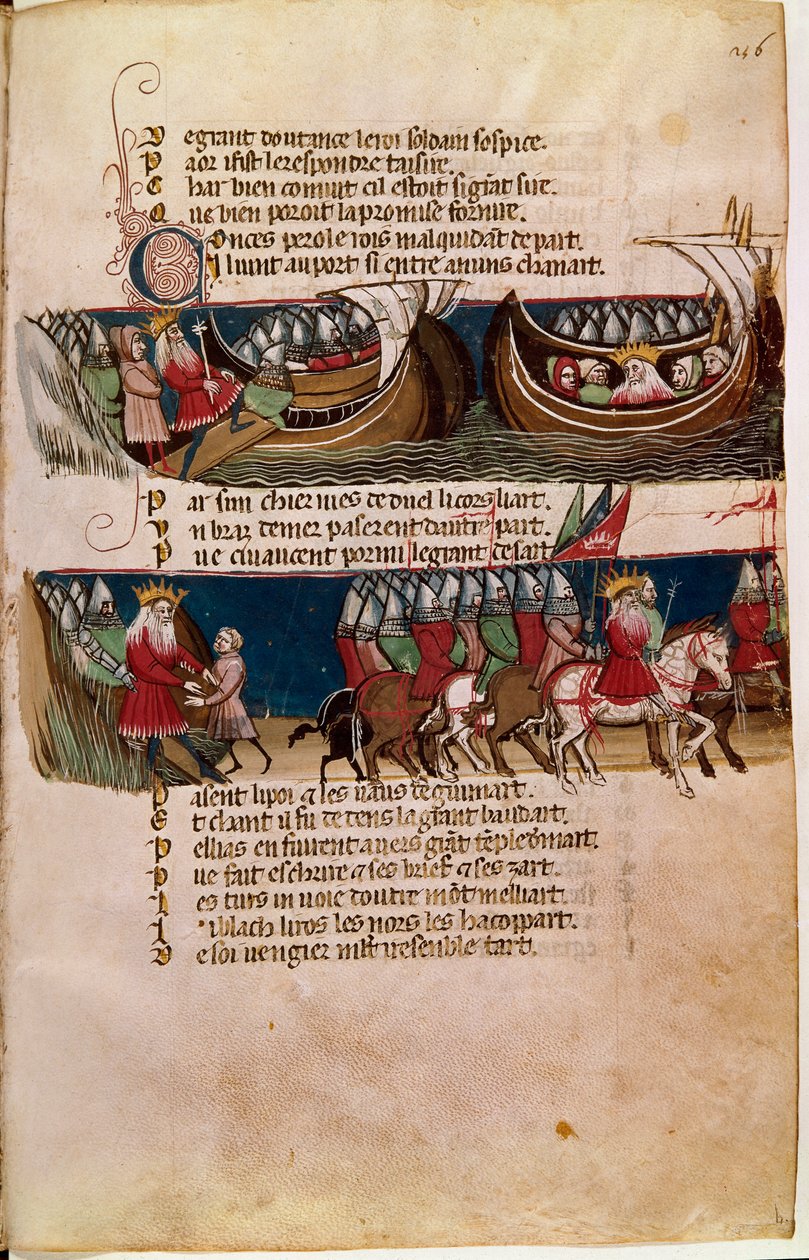 246
D egrant doutance le roi soldain sospice.
P aor ifist le respondre taisire.
C har bien conuit cil estoit si grāt sire.
Q ue bien poroit la promise fornire.
C Onces perole rois malquidāt depart.
Il uint au port si entre anuns chanart.
P ar sun chier nies de duel li cors li art.
V n braz demer paserent dautre part.
P ue ciuaucent por mi le grant desart
P asent li poi ⁊ les uaus de guimart.
E t chant il fu dedens la grant baudart.
P ellias en fuirent auers grāt
P ue fait eschrire ⁊ ses brief ⁊ ses zart.
L es turs in uoie doutre mōt melliart.
L i blach li ros les nors les hacoppart.
D e soi uengier resenble tart.